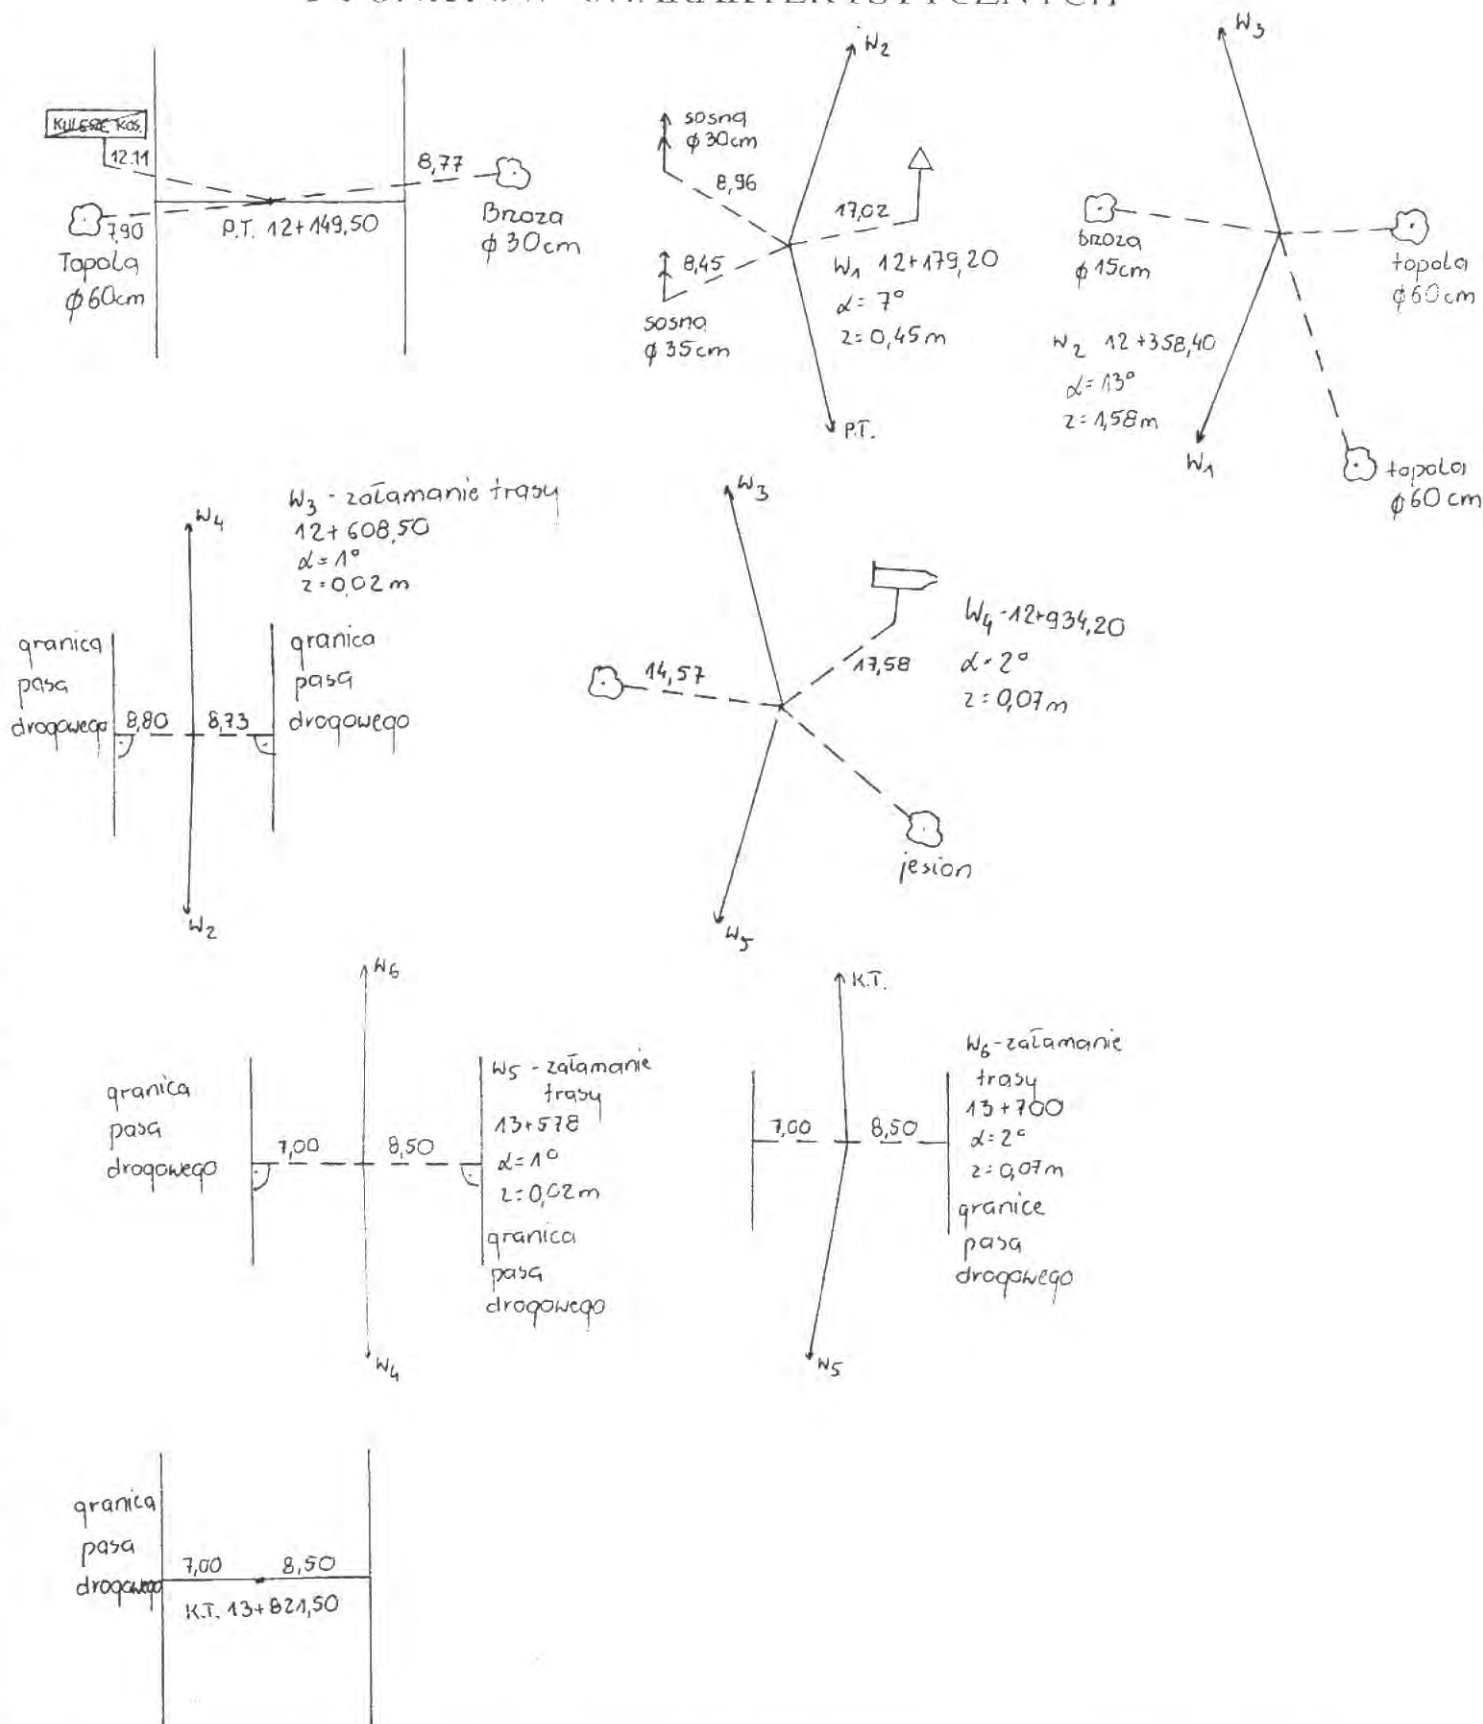 KULESZE KOŚ.
12.11
8,77
7,90
P.T. 12+149,50
Brzoza
ϕ 30cm
Topola
ϕ60cm
W2
sosna
ϕ 30cm
8,96
17,02
8,45
sosna
ϕ 35cm
W1 12+179,20
α= 7°
z= 0,45m
P.T.
W3
brzoza
ϕ 15cm
topola
ϕ60cm
W2 12+358,40
α= 13°
z= 1,58m
W1
topola
ϕ60cm
W4
W3 - załamanie trasy
12+608,50
α= 1°
z=0,02m
granica
pasa
drogowego
8,80
8,73
granica
pasa
drogowego
W2
W3
14,57
17,58
W4 -12+934,20
α= 2°
z= 0,07m
jesion
W5
W6
granica
pasa
drogowego
7,00
8,50
W5 - załamanie
trasy
13+578
α= 1°
z= 0,02m
granica
pasa
drogowego
W4
K.T.
7,00
8,50
W6-załamanie
trasy
13+700
α= 2°
z= 0,07m
granice
pasa
drogowego
W5
granica
pasa
drogowego
7,00
8,50
K.T. 13+821,50